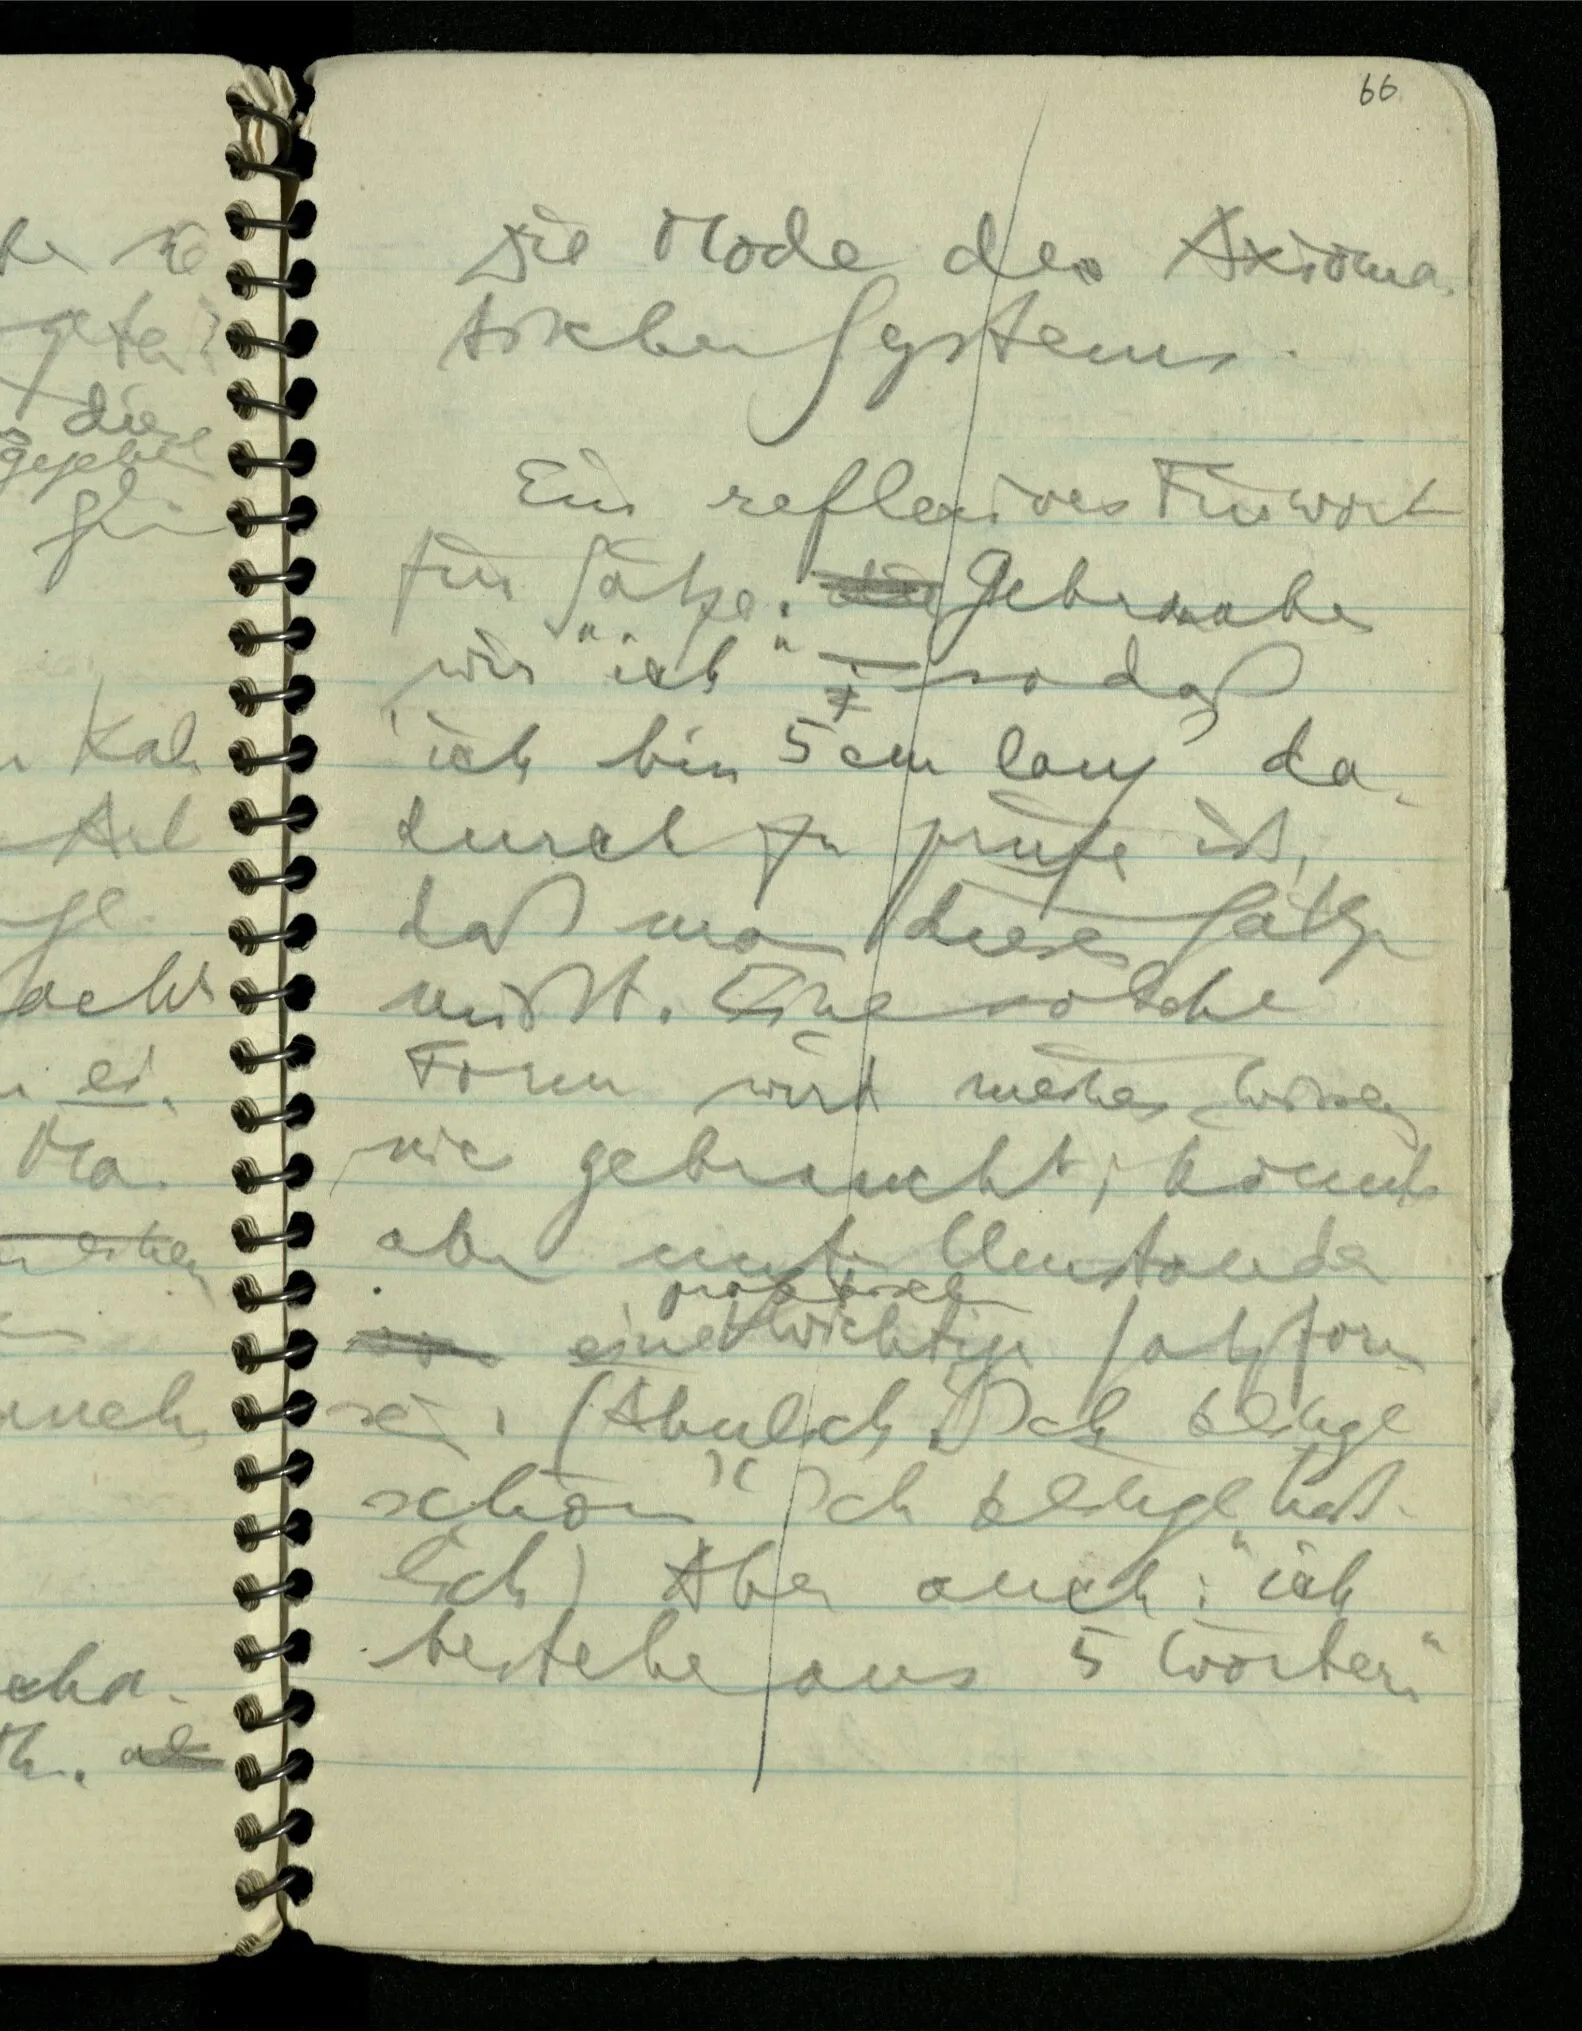 66
Die Mode des Axioma-
tischen Systems.
Ein reflexives Fürwort
für Sätze. Gebrauchen
wir "ich" so daß
'ich bin 5 cm lang' da-
durch zu prüfen ist,
daß man diesen Satz
mißt. Eine solche
Form wird meines Wissens
nie gebraucht, könnte
aber unter Umständen
praktisch
eine wichtige Satzform
sein. (Ähnlich Ich klinge
schön" "Ich klinge häß-
lich) Aber auch: "ich
bestehe aus 5 Wörtern"
die
gegeben
ei.
Ma-